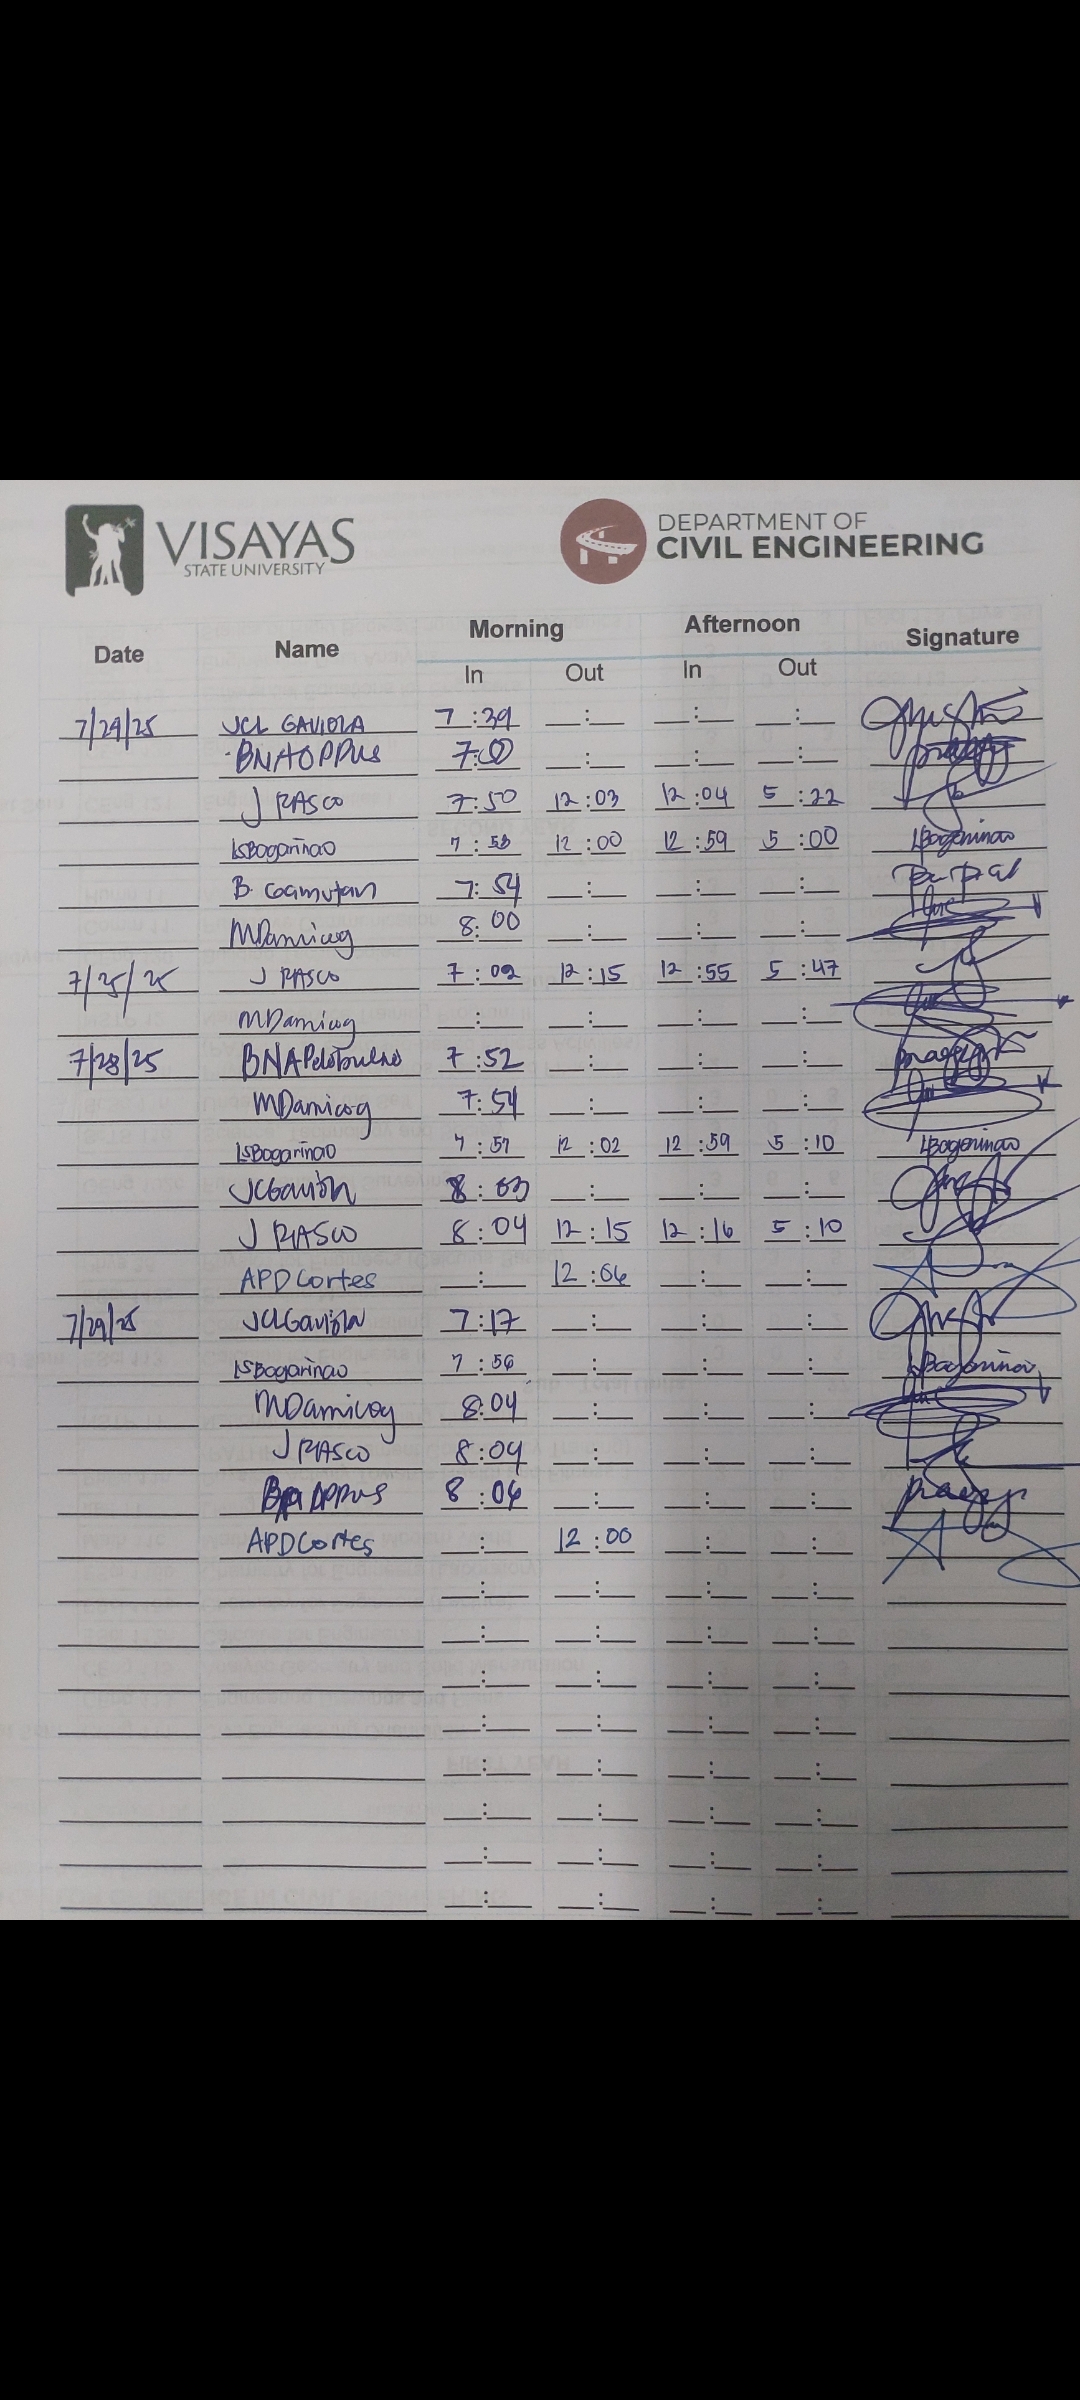 VISAYAS
STATE UNIVERSITY
DEPARTMENT OF
CIVIL ENGINEERING
Date Name Morning Afternoon Signature
In Out In Out
7/24/25 JCL GAVIOLA 7:39
BNAOPPUS 7:00
J RASCO 7:50 12:03 12:04 5:22
LSBogarinao 7:58 12:00 12:59 5:00 LBogarinao
B. Coamutan 7:54
MDamicog 8:00
7/25/25 J RASCO 7:02 12:15 12:55 5:47
MDamicog
7/28/25 7:52
MDamicog 7:54
LSBogarinao 7:57 12:02 12:59 5:10 LBogarinao
JCGaviola 8:03
J RASCO 8:04 12:15 12:16 5:10
APDCortes 12:06
7/29/25 JCLGaviola 7:17
LSBogarinao 7:56 LBogarinao
MDamicog 8:04
J RASCO 8:04
8:06
APDCortes 12:00